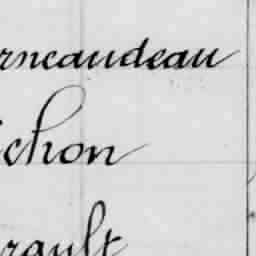 rneaudeau
ichon
rault